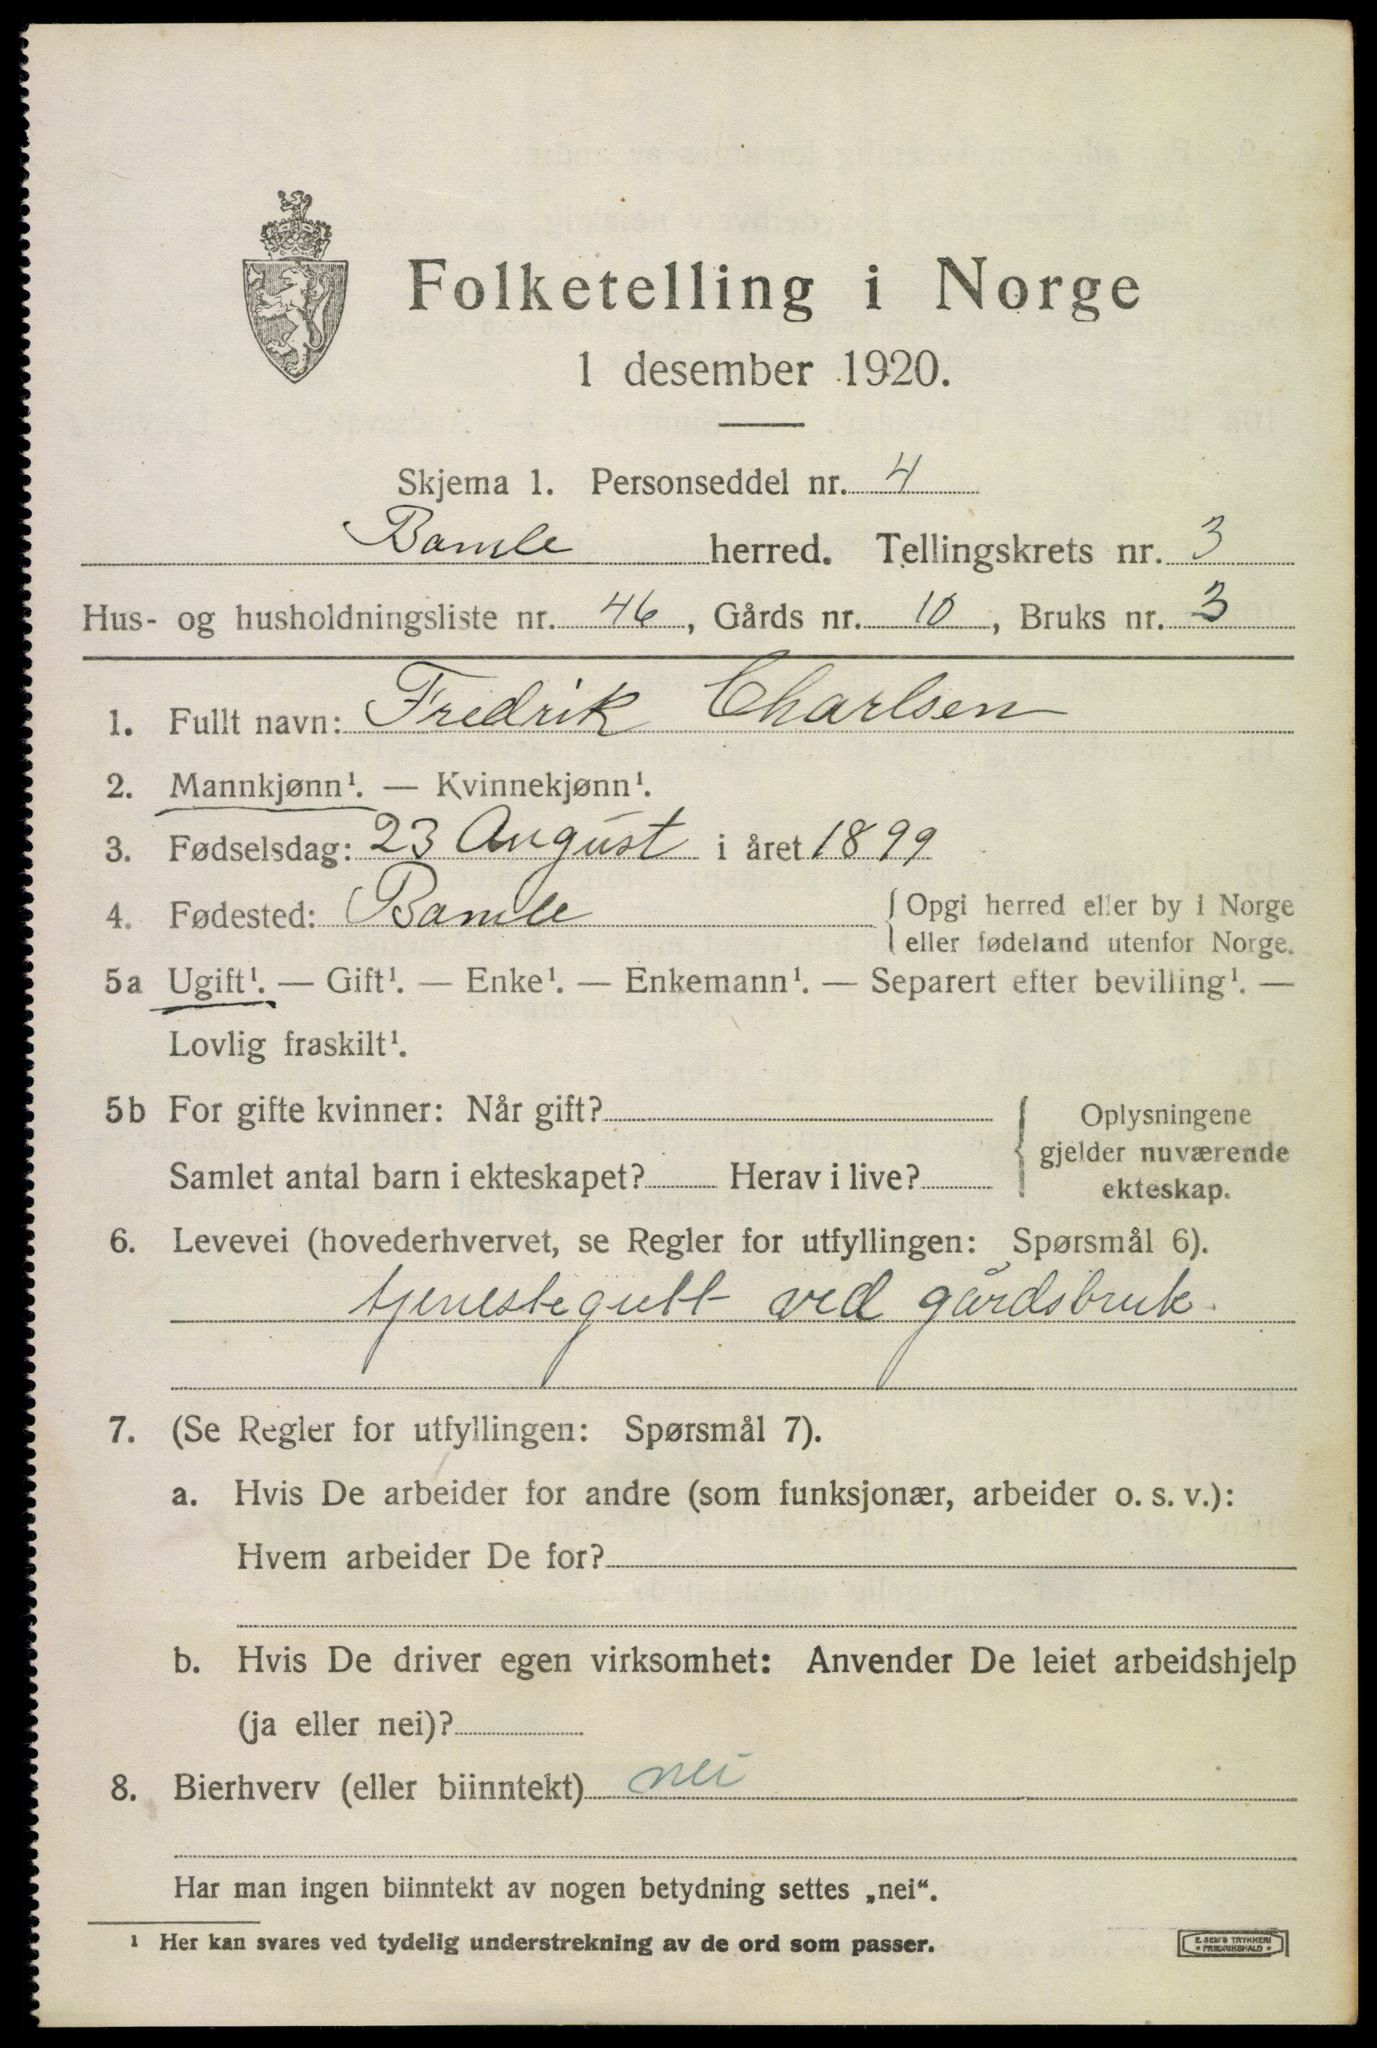 Folketelling i Norge
1 desember 1920.
Skjema 1. Personseddel nr. 4
Bamle herred. Tellingskrets nr. 3
Hus- og husholdningsliste nr. 46, Gårds nr. 10, Bruks nr. 3
1. Fullt navn: Fredrik Charlsen
2. Mannkjønn¹. — Kvinnekjønn¹.
3. Fødselsdag: 23 August i året 1899
4. Fødested: Bamle { Opgi herred eller by i Norge
eller fødeland utenfor Norge.
5a Ugift¹. — Gift¹. — Enke¹. — Enkemann¹. — Separert efter bevilling¹. —
Lovlig fraskilt¹.
5b For gifte kvinner: Når gift? { Oplysningene
gjelder nuværende
Samlet antal barn i ekteskapet? Herav i live? ekteskap.
6. Levevei (hovederhvervet, se Regler for utfyllingen: Spørsmål 6).
tjenestegutt ved gårdsbruk.
7. (Se Regler for utfyllingen: Spørsmål 7).
a. Hvis De arbeider for andre (som funksjonær, arbeider o. s. v.):
Hvem arbeider De for?
b. Hvis De driver egen virksomhet: Anvender De leiet arbeidshjelp
(ja eller nei)?
8. Bierhverv (eller biinntekt) nei
Har man ingen biinntekt av nogen betydning settes „nei“.
¹ Her kan svares ved tydelig understrekning av de ord som passer.
E. SEM'S TRYKKERI
• FREDRIKSHALD •